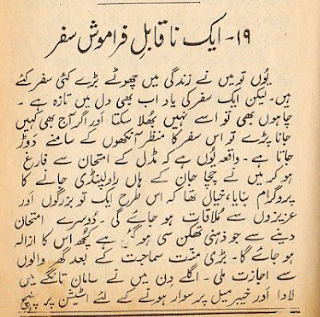 ۱۹- ایک ناقابلِ فراموش سفر
یُوں تو میں نے زندگی میں چھوٹے بڑے کئی سفر کئے
ہیں۔ لیکن ایک سفر کی یاد اب بھی دل میں تازہ ہے ۔
چاہوں بھی تو اسے نہیں بھُلا سکتا اور اگر آج بھی کہیں
جانا پڑے تو اس سفر کا منظر آنکھوں کے سامنے دوڑ
جاتا ہے ۔ واقعہ یُوں ہے کہ مڈل کے امتحان سے فارغ
ہو کر میں نے چچا جان کے ہاں راولپنڈی جانے کا
پروگرام بنایا، خیال تھا کہ اس طرح ایک تو بزرگوں اور
عزیزوں سے مُلاقات ہو جائے گی ۔ دُوسرے امتحان
دینے سے جو ذہنی تھکن سی ہو گئی ہے کچھ اس کا ازالہ
ہو جائے گا۔ بڑی منّت سماجت کے بعد گھر والوں
سے اجازت ملی ۔ اگلے دن میں نے سامان تانگے میں
لادا اور خیبر میل پر سوار ہونے کے لئے اسٹیشن پر پہنچ